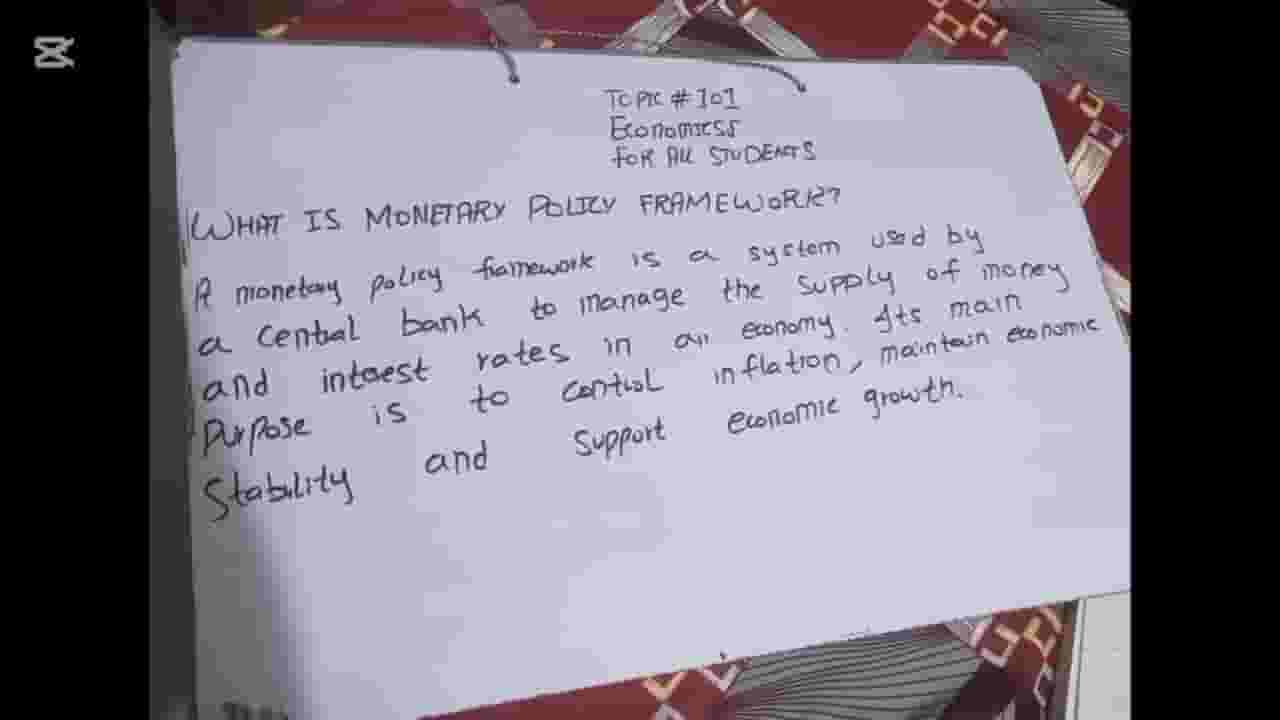 TOPIC # 101
Economicss
FOR ALL STUDENTS
WHAT IS MONETARY POLICY FRAMEWORK?
A monetary policy framework is a system used by
a central bank to manage the supply of money
and interest rates in an economy. Its main
Purpose is to control inflation, maintain economic
Stability and support economic growth.